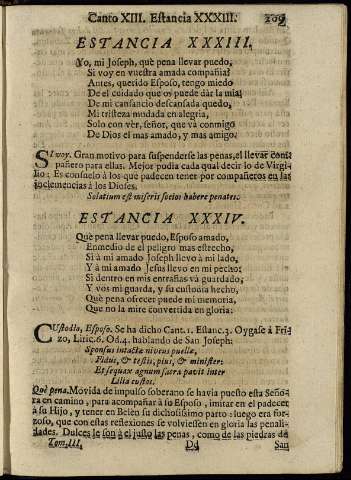 Canto XIII. Estancia XXXIII. 209
ESTANCIA XXXIII.
Yo, mi Joseph, què pena llevar puedo,
Si voy en vuestra amada compañia?
Antes, querido Esposo, tengo miedo
De el cuidado que os puede dàr la mia;
De mi cansancio descansada quedo,
Mi tristeza mudada en alegria,
Solo con vèr, señor, que và conmigo
De Dios el mas amado, y mas amigo.
SI voy. Gran motivo para suspenderse las penas, el llevar com-
pañero para ellas. Mejor podia cada qual decir lo de Virgi-
lio: Es consuelo à los que padecen tener por compañeros en las
inclemencias à los Dioses.
Solatium est miseris socios habere penates.
ESTANCIA XXXIV.
Què pena llevar puedo, Esposo amado,
Enmedio de el peligro mas estrecho,
Si à mi amado Joseph llevo à mi lado,
Y à mi amado Jesus llevo en mi pecho:
Si dentro en mis entrañas và guardado,
Y vos mi guarda, y su custodia hecho,
Què pena ofrecer puede mi memoria,
Que no la mire convertida en gloria:
CUstodio, Esposo. Se ha dicho Cant.1. Estanc.3. Oygase à Fri-
zo, Liric.6. Od.4. hablando de San Joseph:
Sponsus intactæ niveus puellæ,
Fidus, & testis, pius, & minister:
Et sequax agnum sacra pavit inter
Lilia custos.
Què pena. Movida de impulso soberano se havia puesto esta Seño-
ra en camino, para acompañar à su Esposo, imitar en el padecer
à su Hijo, y tener en Belèn su dichosissimo parto: luego era for-
zoso, que con estas reflexiones se volviessen en gloria las penali-
dades. Dulces le son à el justo las penas, como de las piedras de
Tom.III. Dd San